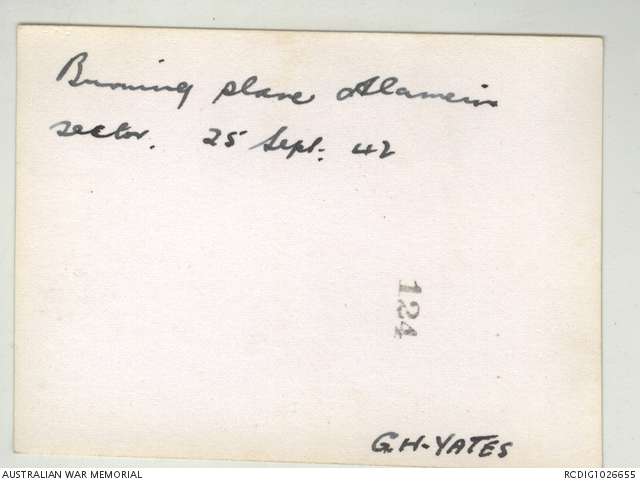 Burning plane Alamein
sector. 25 Sept. 42
124
G.H-YATES
AUSTRALIAN WAR MEMORIAL
RCDIG1026655